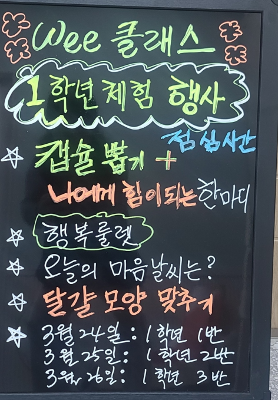 Wee 클래스
1학년 체험 행사
점심시간
캡슐 뽑기 +
나에게 힘이되는 한마디
행복룰렛
오늘의 마음날씨는?
달걀 모양 맞추기
3월 24일 : 1학년 1반
3월 25일 : 1학년 2반
3월 26일 : 1학년 3반